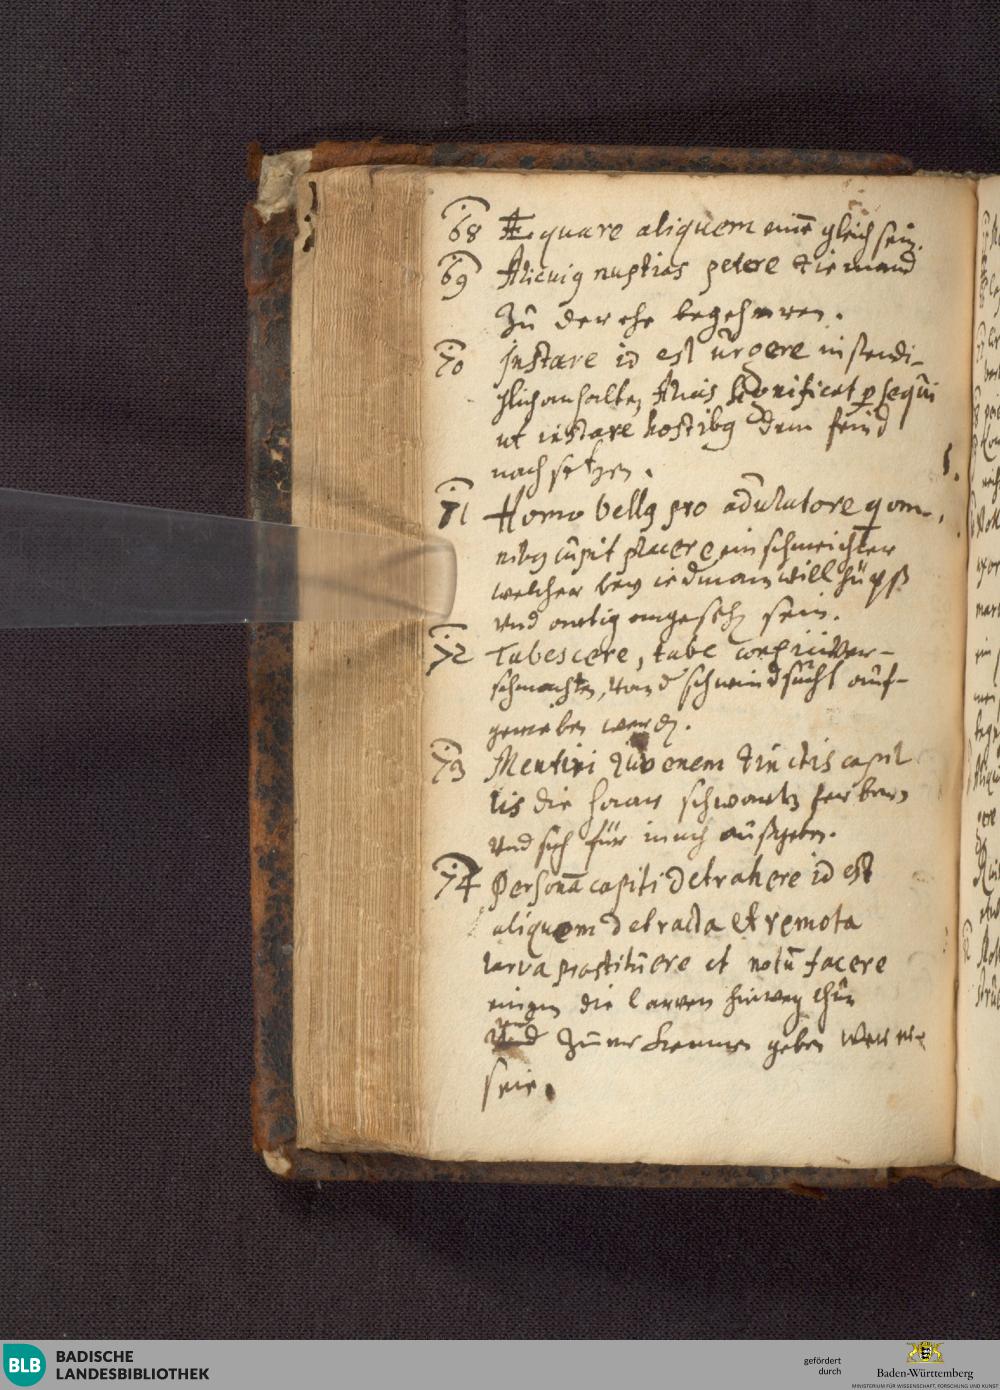 68 Æquare aliquem eine͂ gleich sein.
69 Alicuig nuptias petere Niemand
zů der ehe begehren.
70 Instare id est ůrgere instendi-
glich anhalten, Alias significat psequi
ut instare hostibg dem feind
nach setzen.
71 Homo bellg pro adulatore q om-
nibg cupit placere ein schmeichler
welcher bey iedman will hüpß
und artig angeseh sein.
72 Tabescere, tabe ver-
schmachten, schwindsůcht auf-
gerieben werd.
73 Mentiri iuvenem tinctis capil
lis die haar schwartz ferben
und sich für iung außgeben.
74 Personā capiti detrahere id est
aliquem detracta et remota
larva prostitůere et notū facere
einem die larven hinweg thůn
und zů erkennen geben wer er
seie.
BLB BADISCHE
LANDESBIBLIOTHEK
gefördert
durch
Baden-Württemberg
MINISTERIUM FÜR WISSENSCHAFT, FORSCHUNG UND KUNST